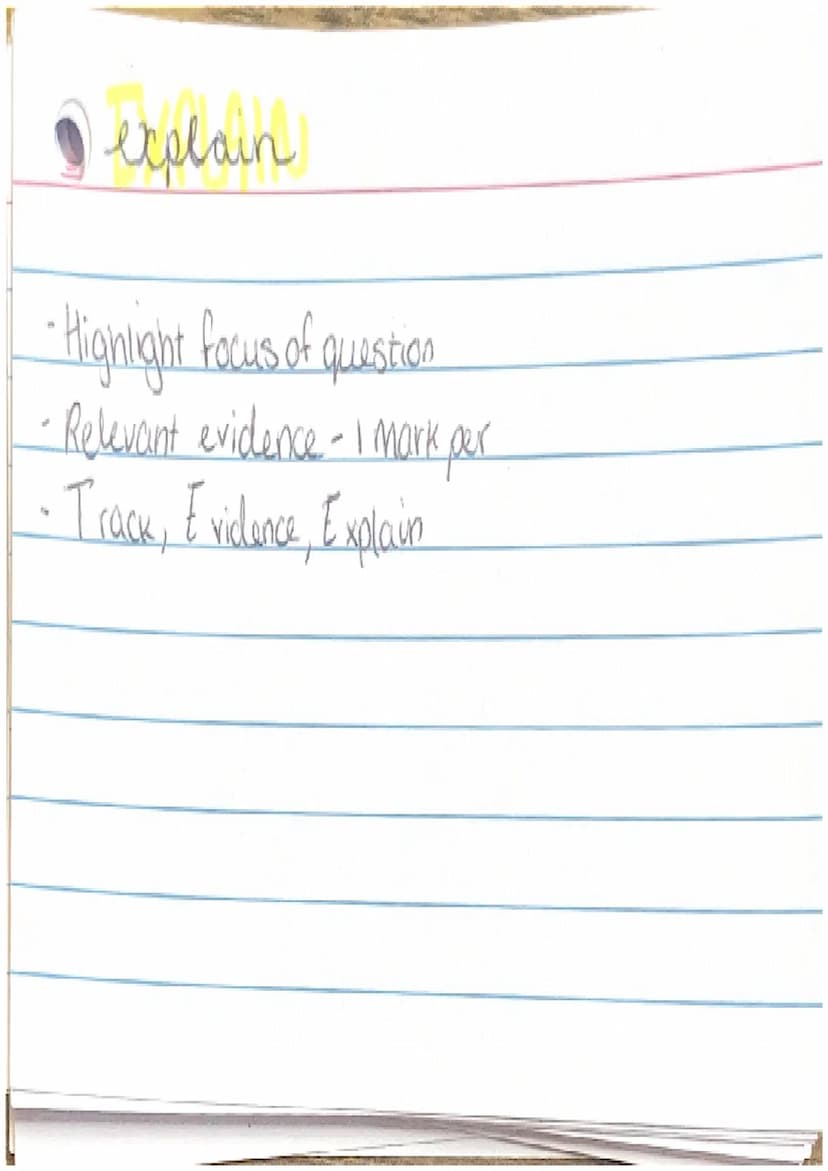 explain
- Highlight focus of question
- Relevant evidence - 1 Mark per
- Track, Evidence, Explain